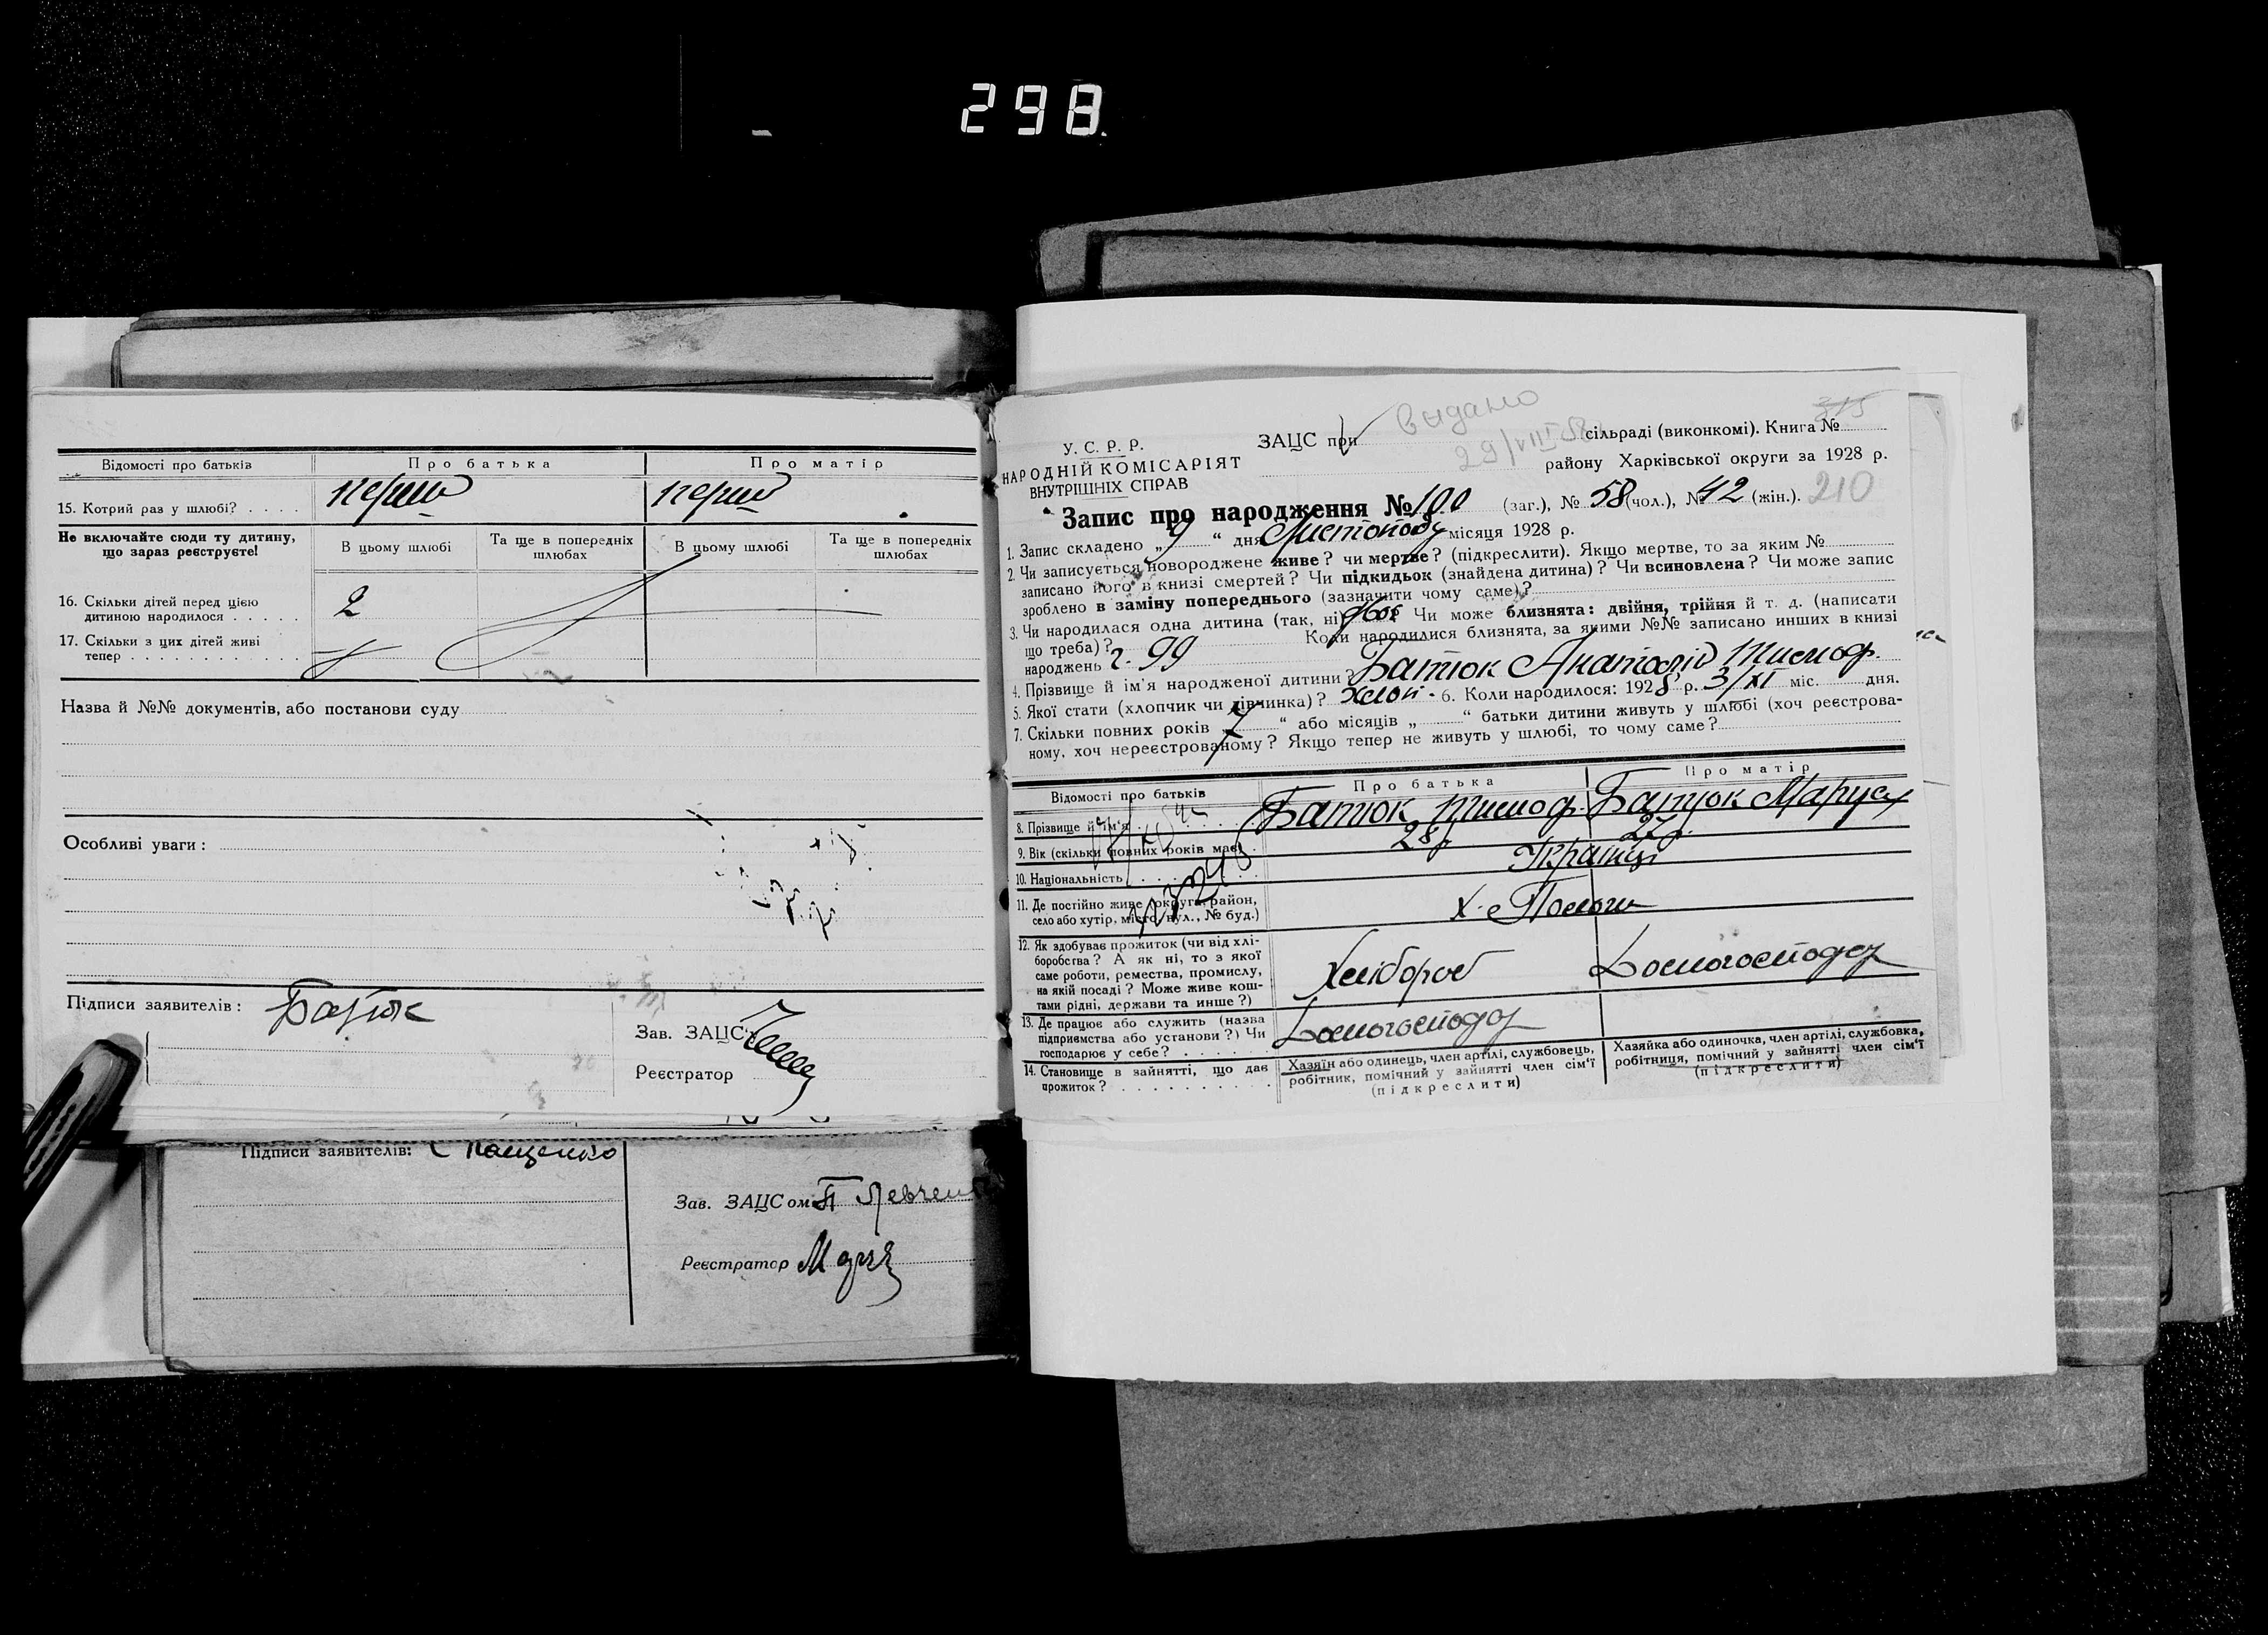 298
Відомості про батьків
Про батька
Про матір
15. Котрий раз у шлюбі? . . . .
перший
перший
Не включайте сюди ту дитину,
що зараз реєструєте!
В цьому шлюбі
Та ще в попередніх
шлюбах
В цьому шлюбі
Та ще в попередніх
шлюбах
16. Скільки дітей перед цією
дитиною народилося . . . . .
2
17. Скільки з цих дітей живі
тепер . . . . . . . . . . . .
Назва й №№ документів, або постанови суду
Особливі уваги:
Підписи заявителів:
Батюк
Зав. ЗАЦС
Реєстратор
Підписи заявителів: Пащенко
Зав. ЗАЦСом П Левчен
Реєстратор
У. С. Р. Р.
НАРОДНІЙ КОМІСАРІЯТ
ВНУТРІШНІХ СПРАВ
ЗАЦС при
выдано
29/VIII 58
сільраді (виконкомі). Книга №
315
району Харківської округи за 1928 р.
Запис про народження № 100 (заг.), № 58 (чол.), № 42 (жін.). 210
1. Запис складено „ 9 “ дня Листопаду місяця 1928 р.
2. Чи записується новороджене живе? чи мертве? (підкреслити). Якщо мертве, то за яким №
записано його в книзі смертей? Чи підкидьок (знайдена дитина)? Чи всиновлена? Чи може запис
зроблено в заміну попереднього (зазначити чому саме)?
3. Чи народилася одна дитина (так, ні) двоє Чи може близнята: двійня, трійня й т. д. (написати
що треба)? Коли народилися близнята, за якими №№ записано инших в книзі
народжень ч. 99
4. Прізвище й ім'я народженої дитини? Батюк Анатолій Тимоф.
5. Якої стати (хлопчик чи дівчинка)? хлоп. 6. Коли народилося: 1928 р. 3/XI міс. дня.
7. Скільки повних років „ 7 “ або місяців „ “ батьки дитини живуть у шлюбі (хоч реєстрова-
ному, хоч нереєстрованому? Якщо тепер не живуть у шлюбі, то чому саме?
Відомості про батьків
Про батька
Про матір
8. Прізвище й ім'я . . . . . . .
Батюк Тимоф.
Батюк Маруся
9. Вік (скільки повних років має) .
28 р
27 р.
10. Національність . . . . . . .
Українці
11. Де постійно живе (округа, район,
село або хутір, місто, вул., № буд.)
12. Як здобуває прожиток (чи від хлі-
боробства? А як ні, то з якої
саме роботи, ремества, промислу,
на якій посаді? Може живе кош-
тами рідні, держави та инше?)
Хлібороб
Домогосподар
13. Де працює або служить (назва
підприємства або установи?) Чи
господарює у себе? . . . . . .
Домогосподар
14. Становище в зайнятті, що дає
прожиток? . . . . . . . . . .
Хазяїн або одинець, член артілі, службовець,
робітник, помічний у зайнятті член сім'ї
(підкреслити)
Хазяйка або одиночка, член артілі, службовка,
робітниця, помічний у зайнятті член сім'ї
(підкреслити)